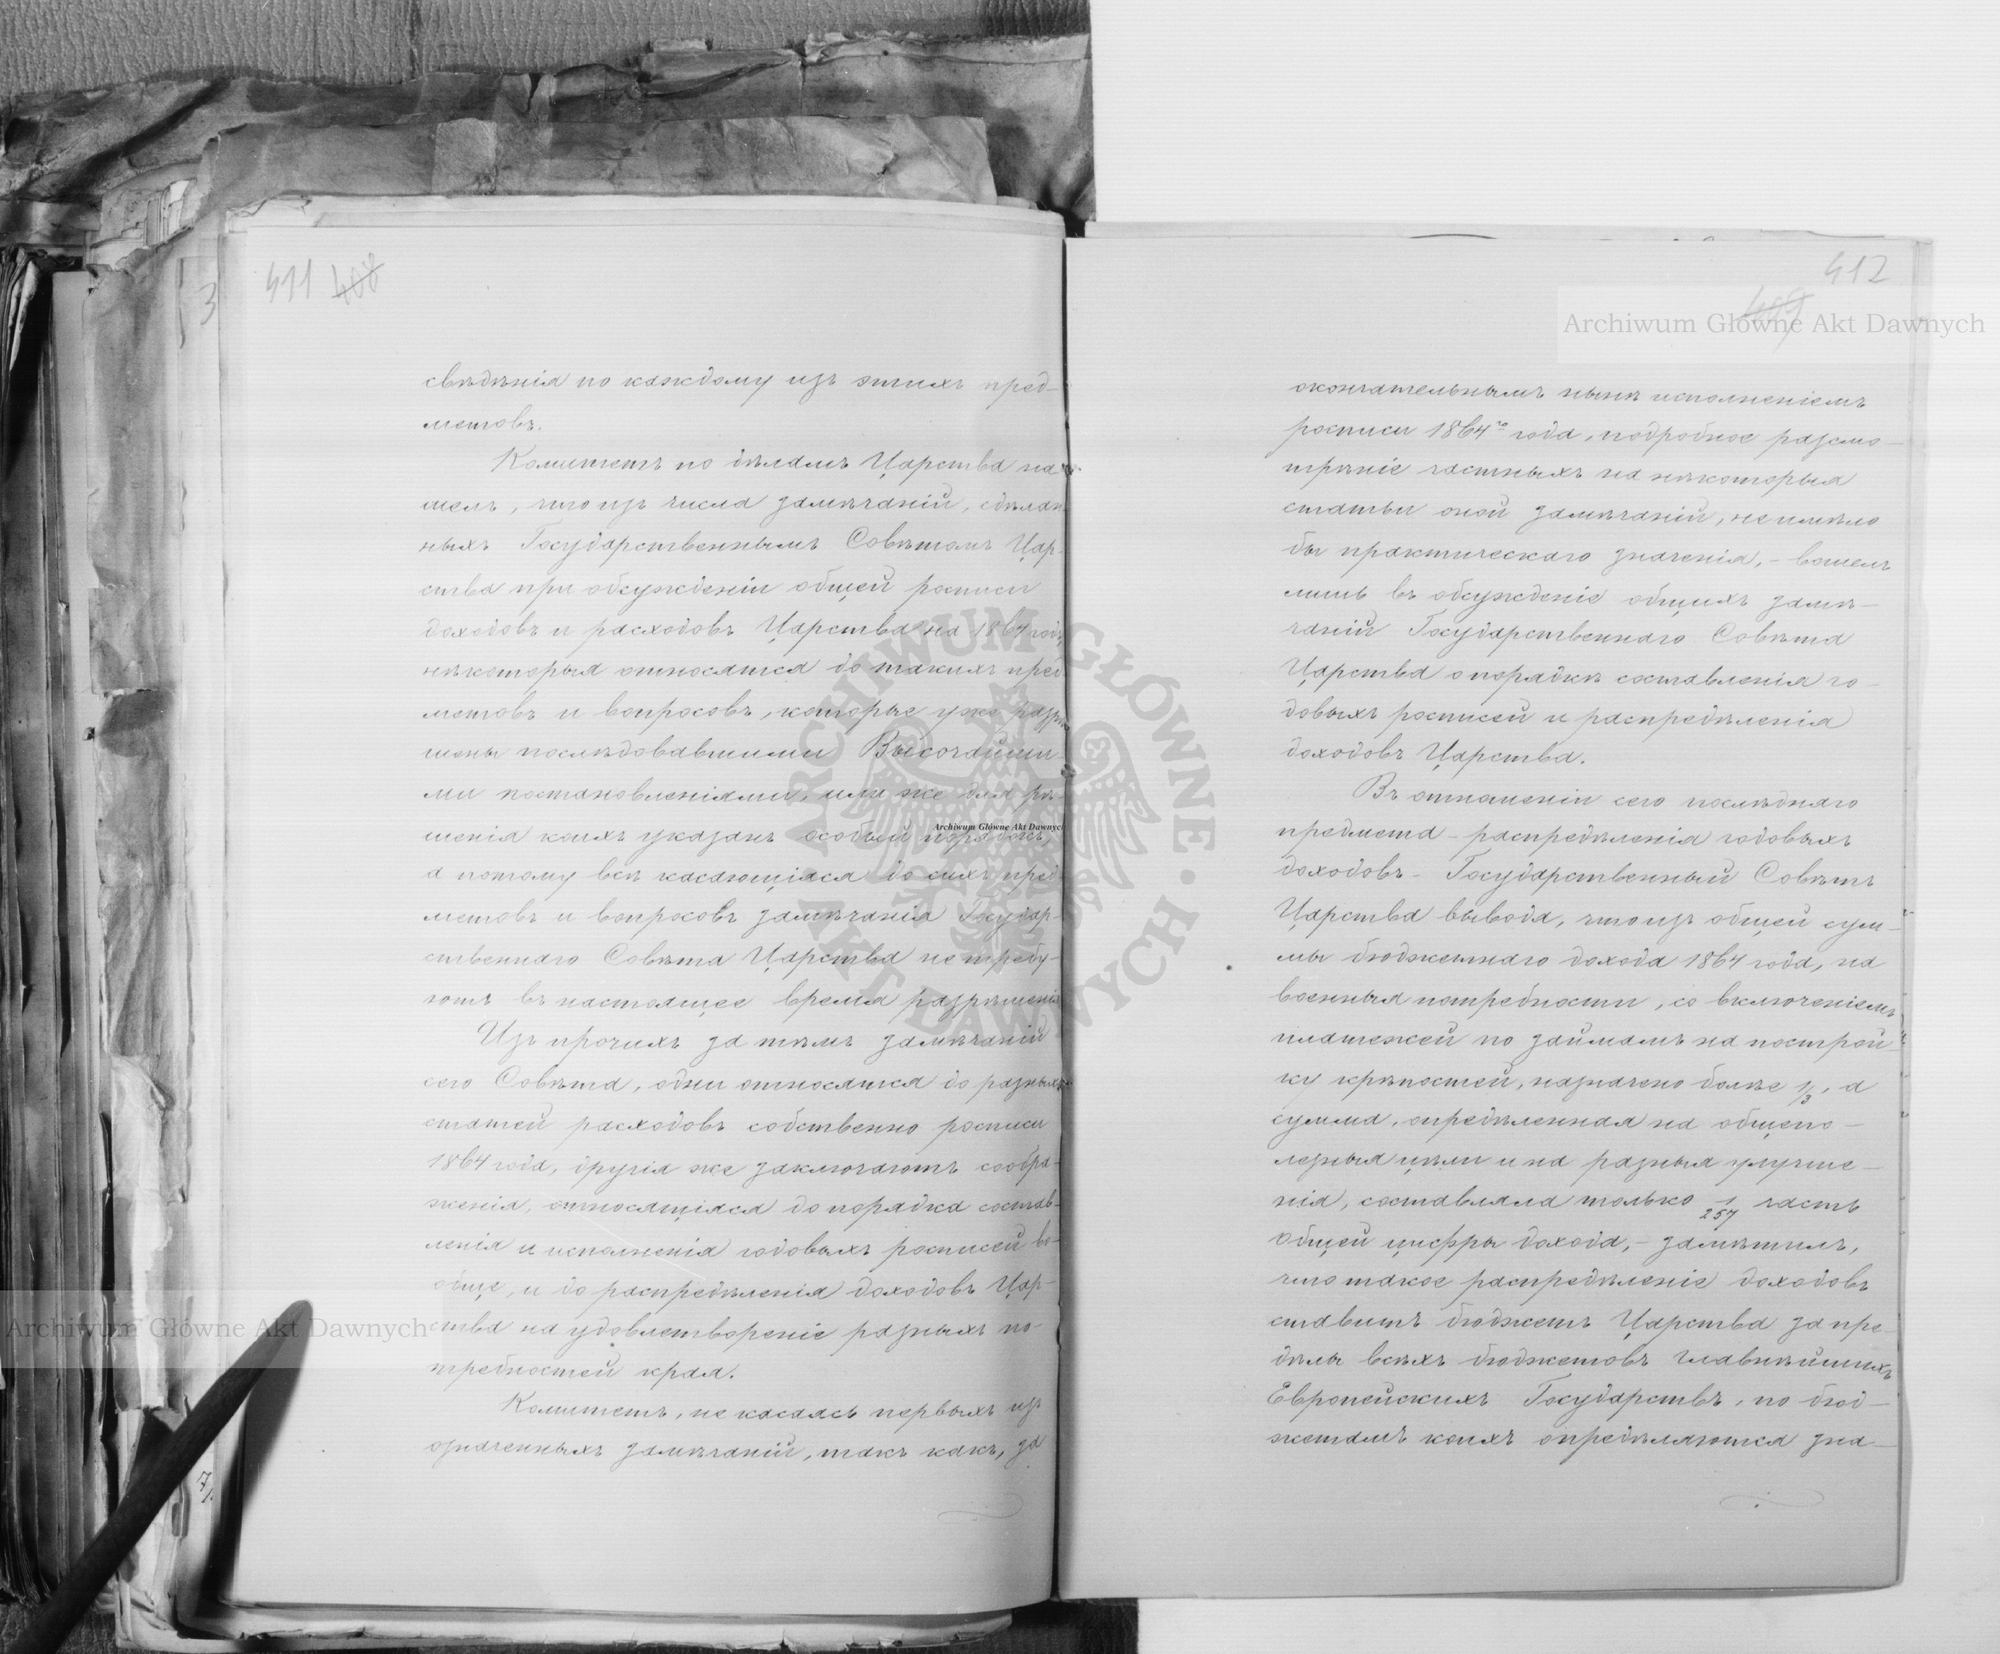 411 408
свѣдѣнія по каждому изъ этихъ пред-
метовъ.
Комитетъ по дѣламъ Царства на-
шелъ, что изъ числа замѣчаній, сдѣлан-
ныхъ Государственнымъ Совѣтомъ Цар-
ства при обсужденіи общей росписи
доходовъ и расходовъ Царства на 1864 годъ,
нѣкоторыя относятся до такихъ пред-
метовъ и вопросовъ, которые уже разрѣ-
шены послѣдовавшими Высочайши-
ми постановленіями, или же для рѣ-
шенія коихъ указанъ особый порядокъ,
а потому всѣ касающіяся до сихъ пред-
метовъ и вопросовъ замѣчанія Государ-
ственнаго Совѣта Царства не требу-
ютъ въ настоящее время разрѣшенія.
Изъ прочихъ за тѣмъ замѣчаній
сего Совѣта, одни относятся до разныхъ
статей расходовъ собственно росписи
1864 года, другія же заключаютъ сообра-
женія, относящіяся до порядка состав-
ленія и исполненія годовыхъ росписей во-
обще, и до распредѣленія доходовъ Цар-
ства на удовлетвореніе разныхъ по-
требностей края.
Комитетъ, не касаясь первыхъ изъ
означенныхъ замѣчаній, такъ какъ, за
412
409
окончательнымъ нынѣ исполненіемъ
росписи 1864го года, подробное разсмо-
трѣніе частныхъ на нѣкоторыя
статьи оной замѣчаній, не имѣло
бы практическаго значенія, - вошелъ
лишь въ обсужденіе общихъ замѣ-
чаній Государственнаго Совѣта
Царства о порядкѣ составленія го-
довыхъ росписей и распредѣленія
доходовъ Царства.
Въ отношеніи сего послѣдняго
предмета - распредѣленія годовыхъ
доходовъ - Государственный Совѣтъ
Царства выводя, что изъ общей сум-
мы бюджетнаго дохода 1864 года, на
военныя потребности, со включеніемъ
платежей по займамъ на построй-
ку крѣпостей, назначено болѣе 1/3, а
сумма, опредѣленная на общепо-
лезныя цѣли и на разныя улучше-
нія, составляла только 1/257 часть
общей цифры дохода, - замѣтилъ,
что такое распредѣленіе доходовъ
ставитъ бюджетъ Царства за пре-
дѣлы всѣхъ бюджетовъ главнѣйшихъ
Европейскихъ Государствъ, по бюд-
жетамъ коихъ опредѣляются зна-
Archiwum Główne Akt Dawnych
Archiwum Główne Akt Dawnych
Archiwum Główne Akt Dawnych
ARCHIWUM GŁÓWNE AKT DAWNYCH